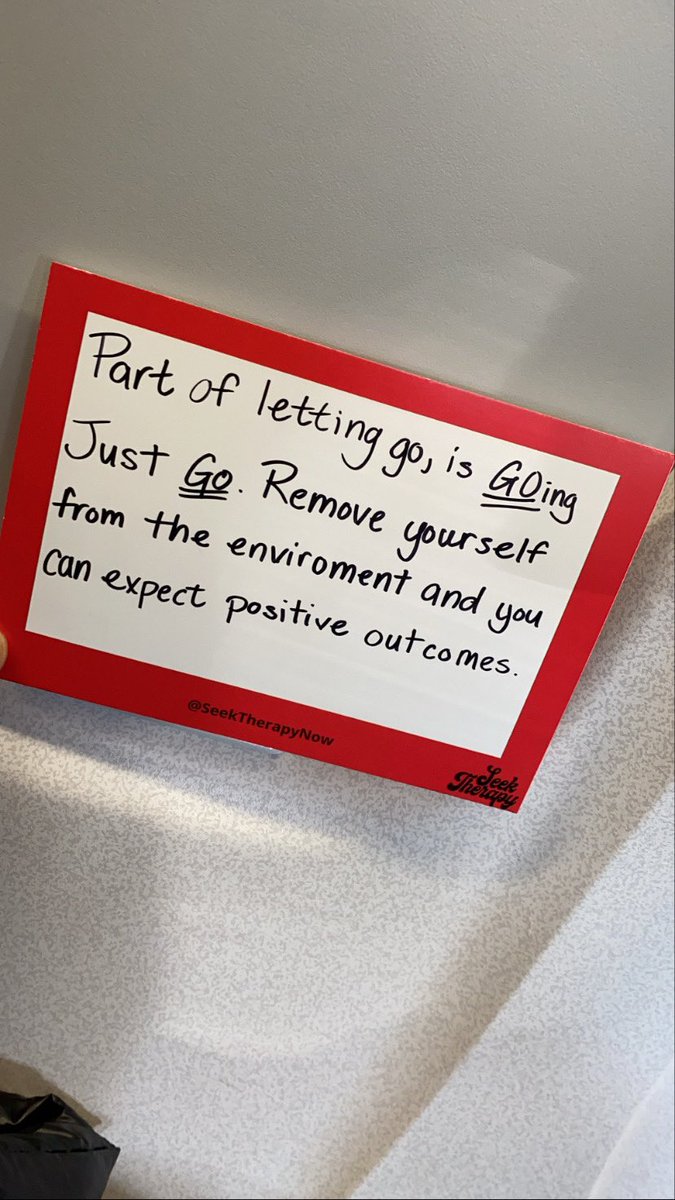 Part of letting go, is GOing
Just Go. Remove yourself
from the enviroment and you
can expect positive outcomes.
@SeekTherapyNow
Seek
Therapy